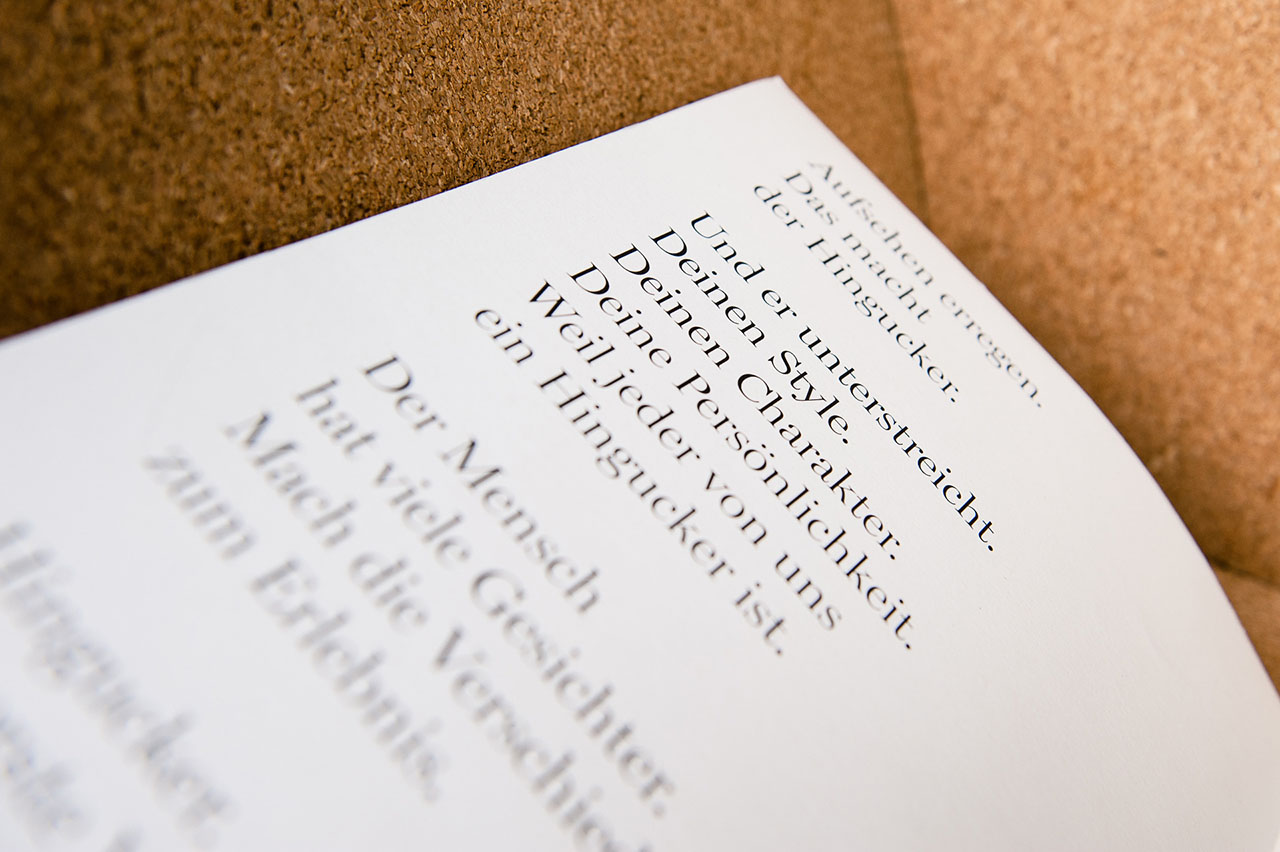 Aufsehen erregen.
Das macht
der Hingucker.
Und er unterstreicht.
Deinen Style.
Deinen Charakter.
Deine Persönlichkeit.
Weil jeder von uns
ein Hingucker ist.
Der Mensch
hat viele Gesichter.
Mach die
zum Erlebnis.
Hingucker.